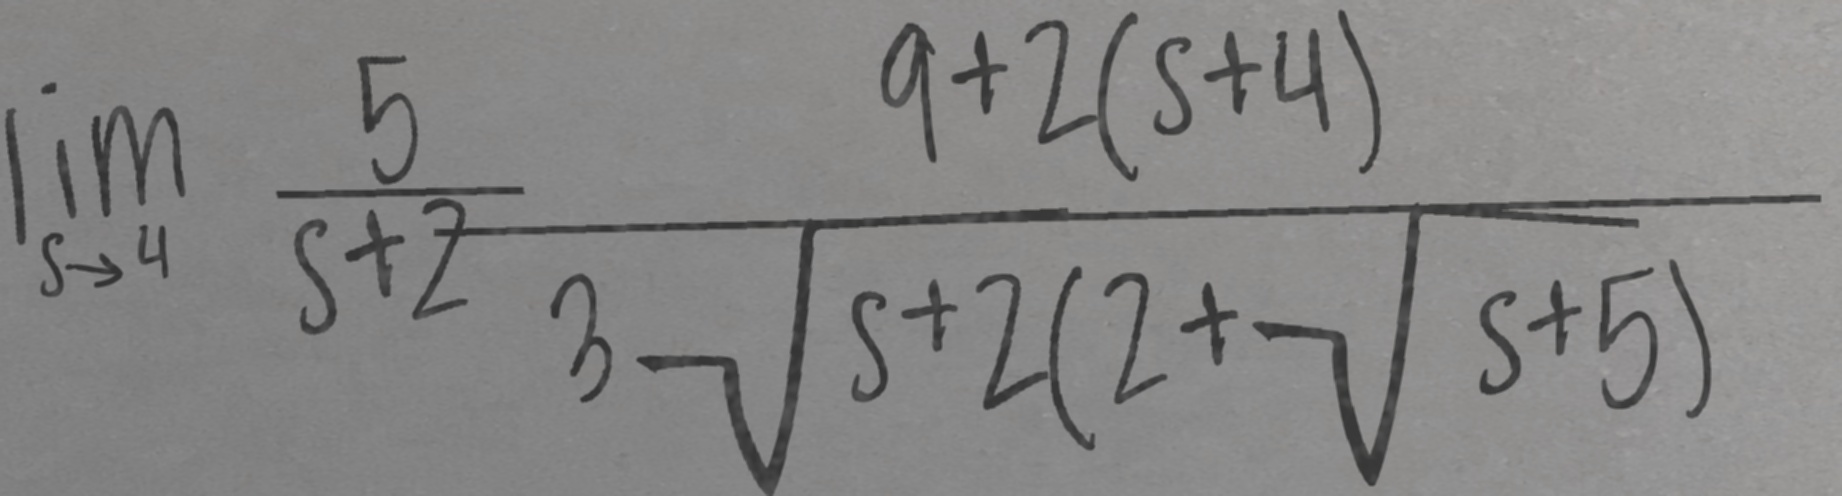 \lim_{s \to 4} \frac{5}{s+2} \frac{9+2(s+4)}{3-\sqrt{s+2(2+\sqrt{s+5})}}